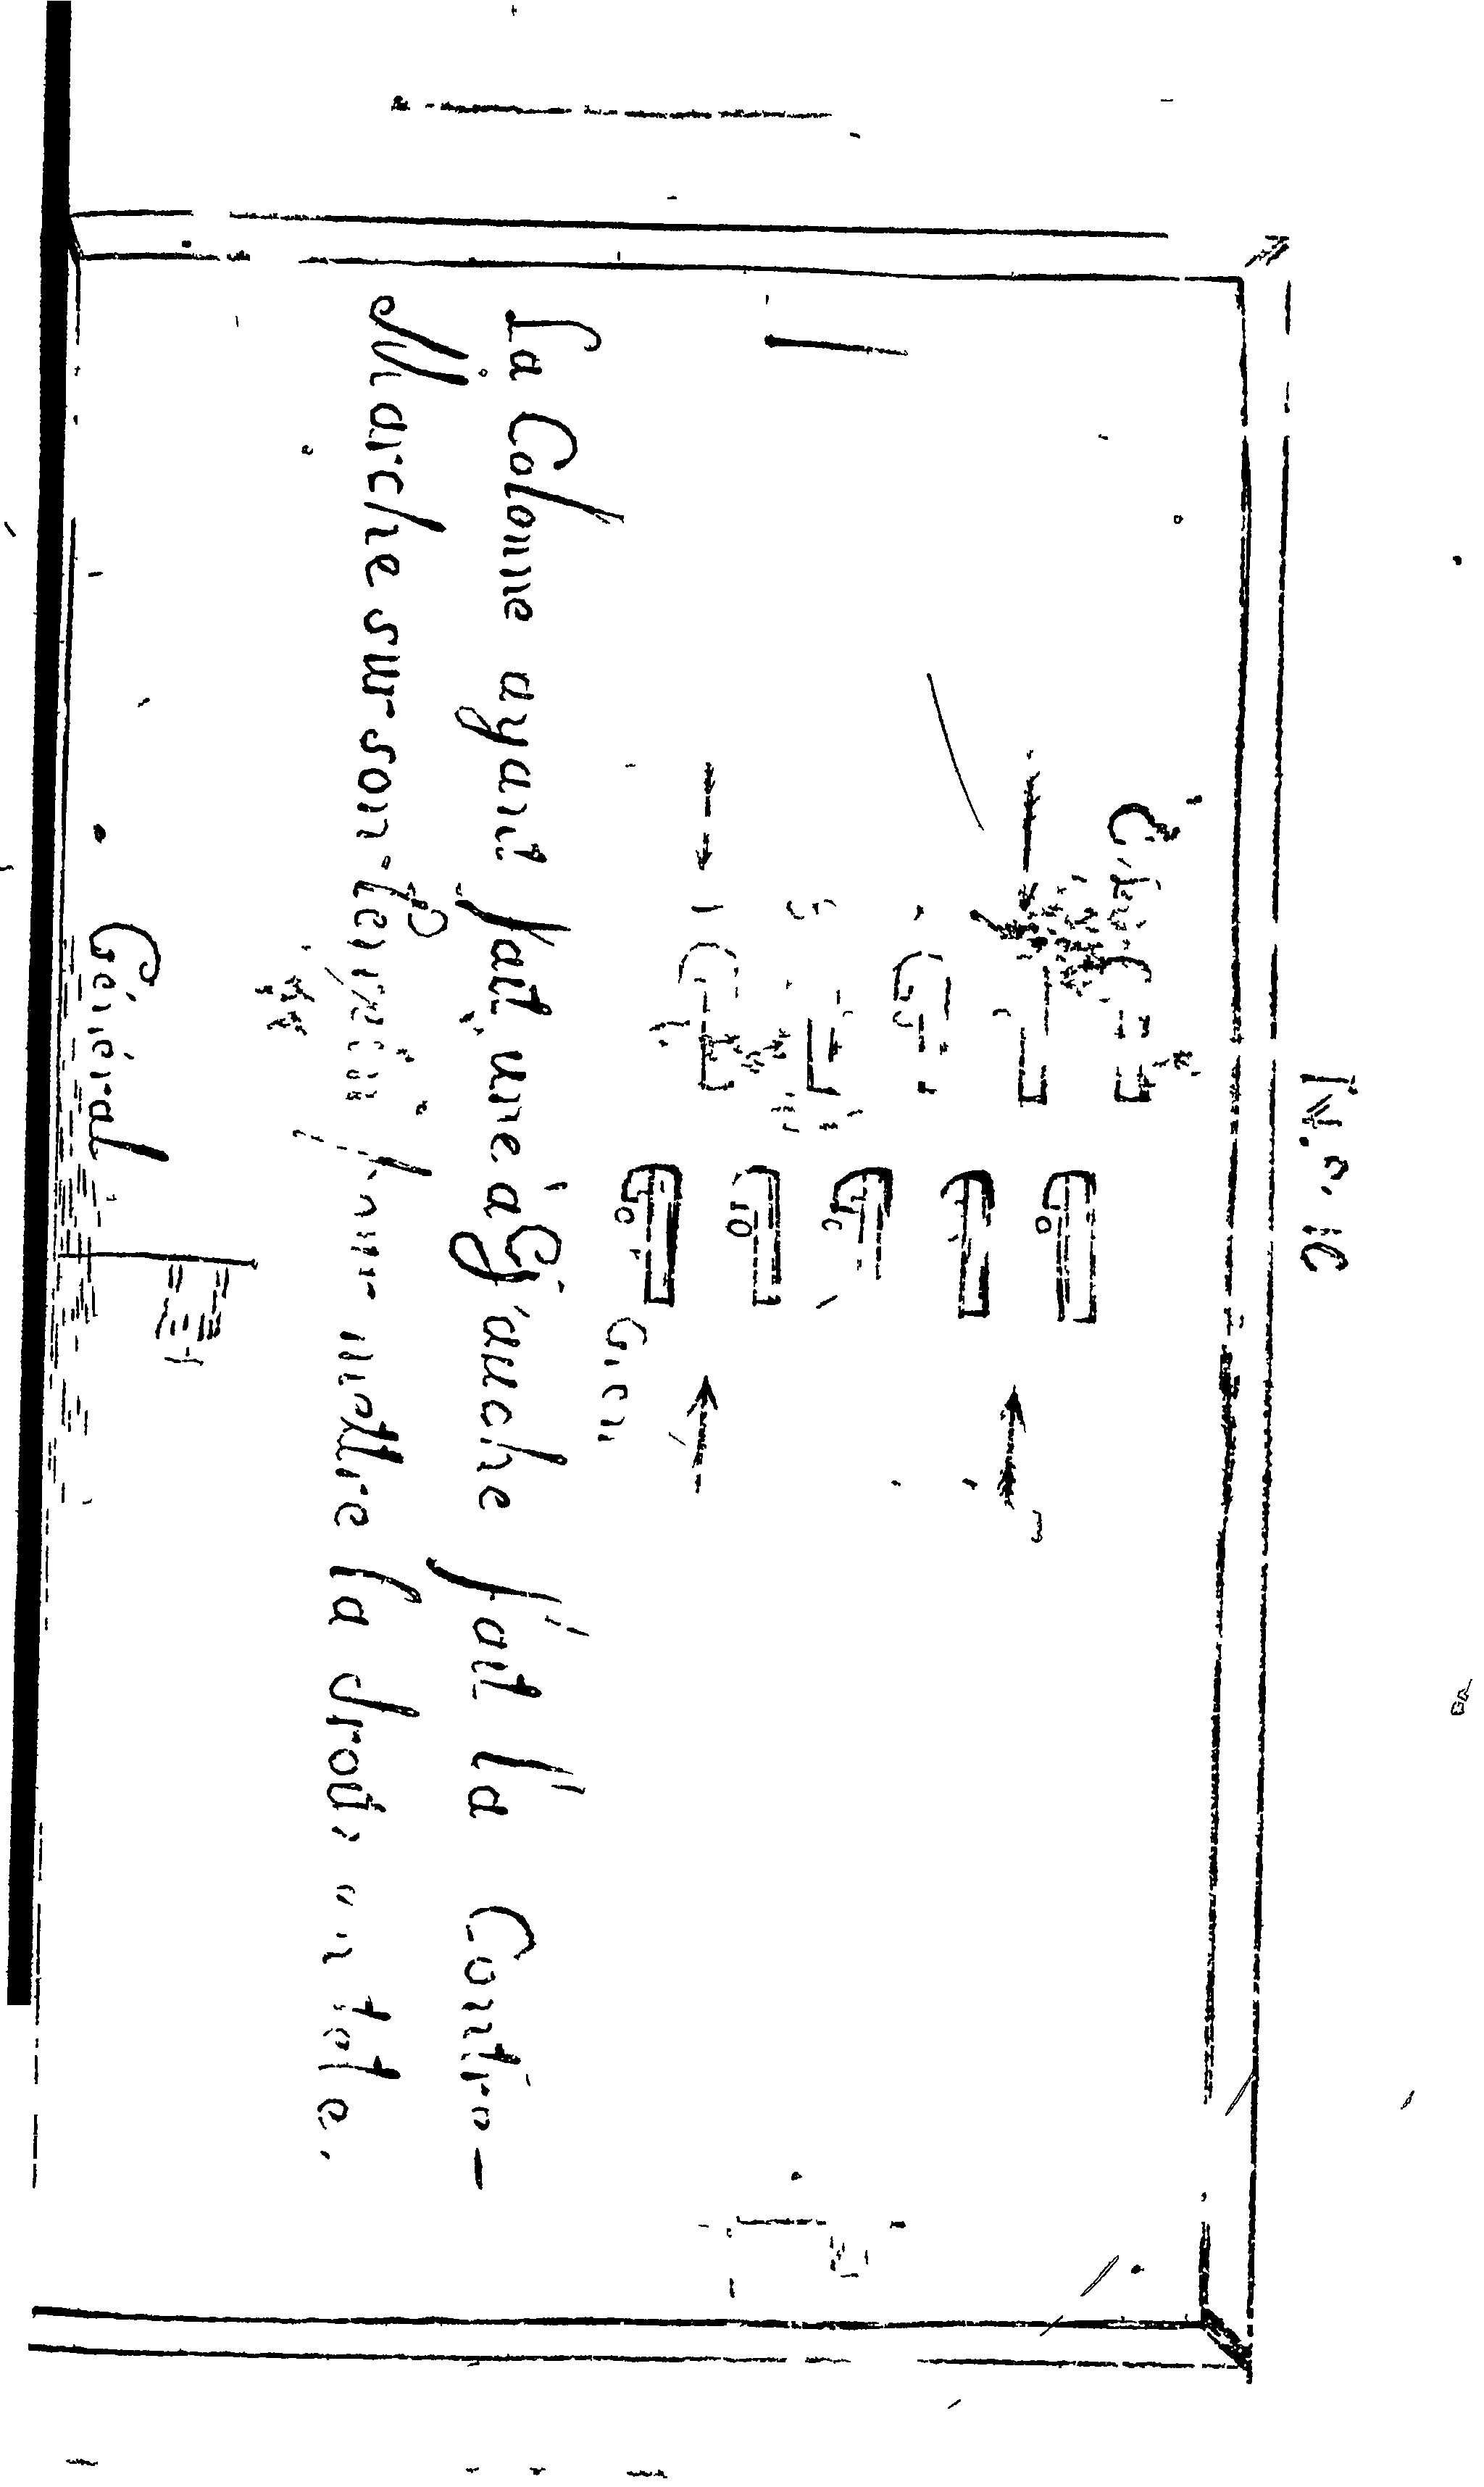 N.o. 10
La Colonne ayant fait une à Gauche fait la Contre-
Marche sur son terrein pour mettre la droite en tete.
Général